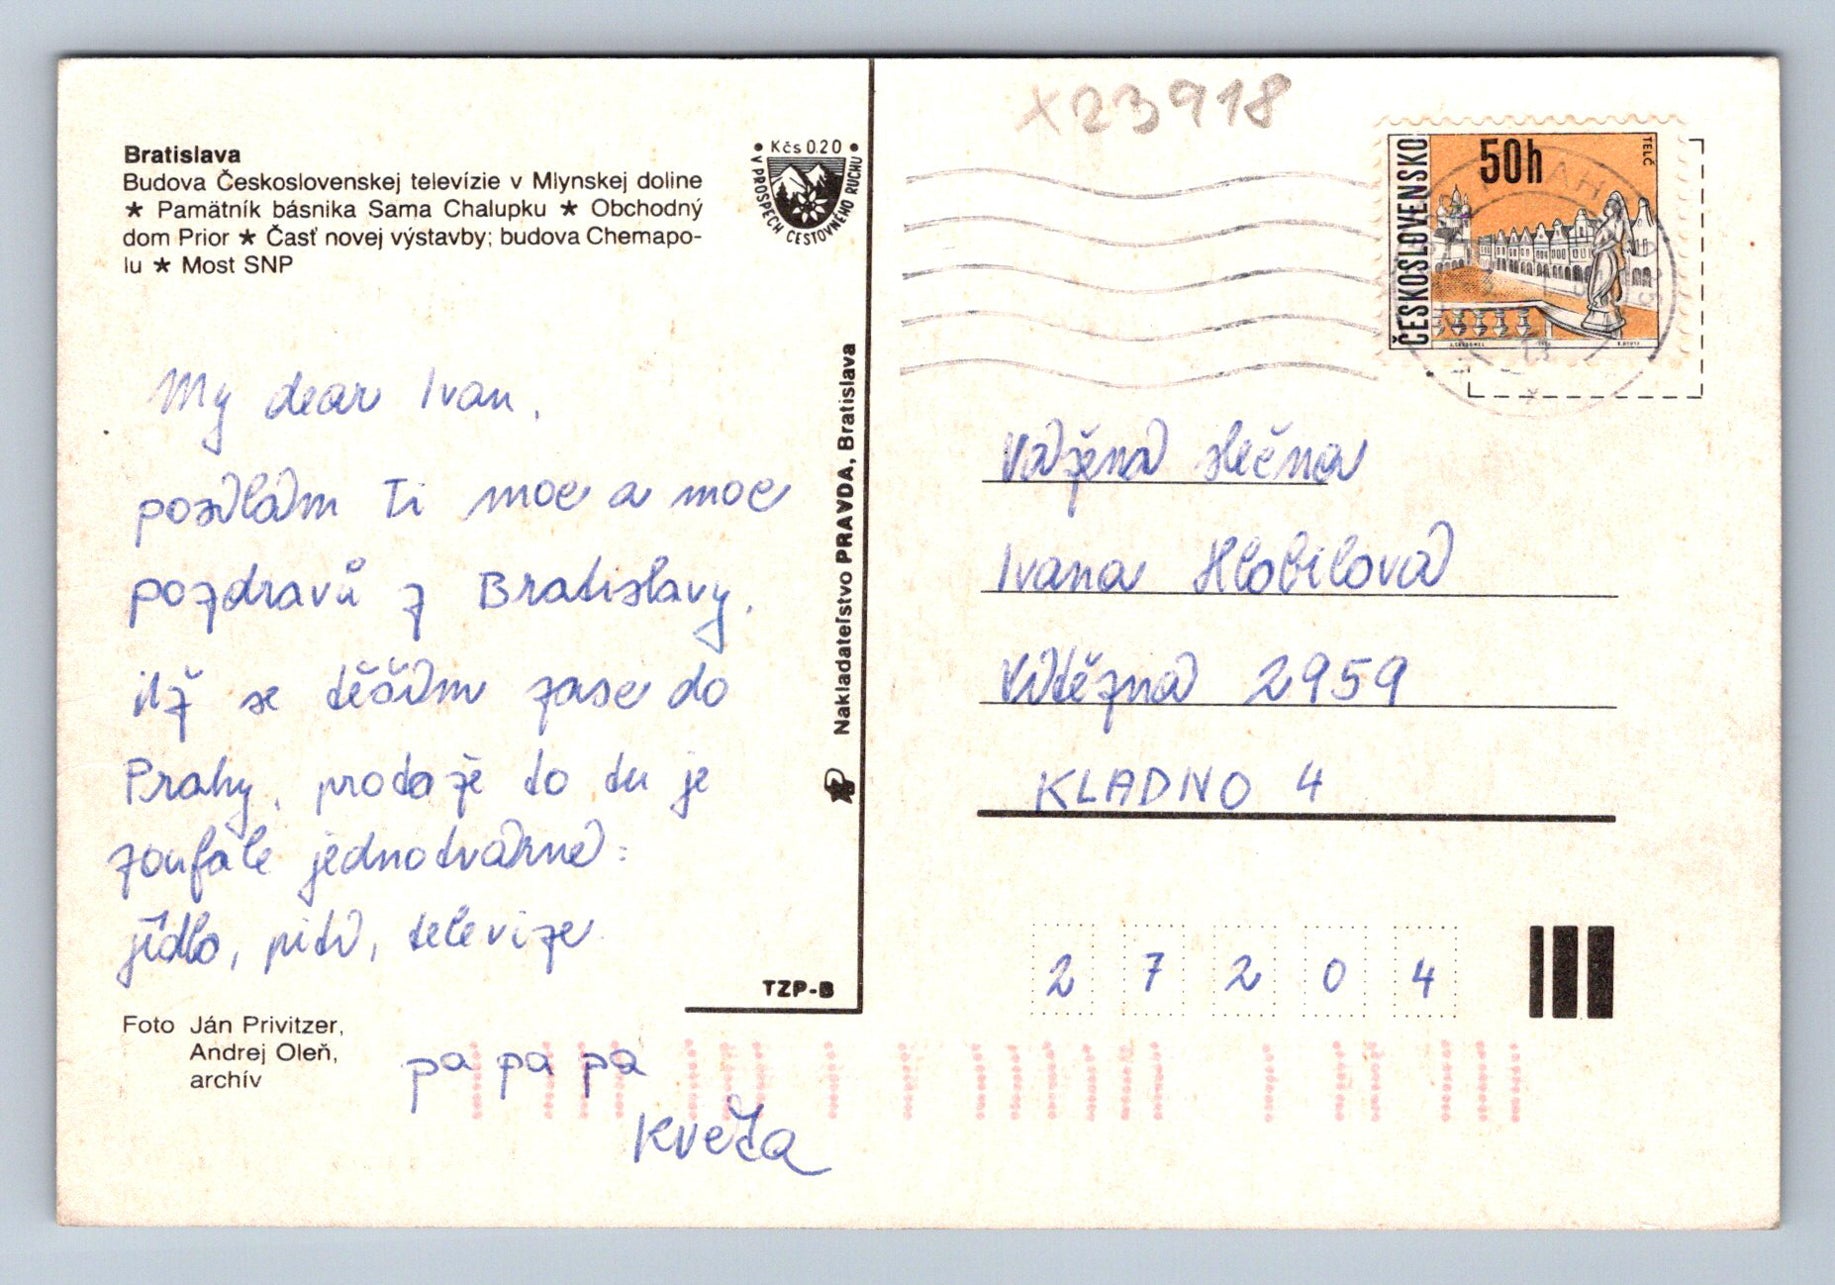 Bratislava
Budova Československej televízie v Mlynskej doline
★ Pamätník básnika Sama Chalupku ★ Obchodný
dom Prior ★ Časť novej výstavby; budova Chemapo-
lu ★ Most SNP
• Kčs 0.20 •
V PROSPECH CESTOVNÉHO RUCHU
My dear Ivan,
posílám Ti moc a moc
pozdravů z Bratislavy.
již se těším zase do
Prahy, protože to tu je
zoufale jednotvárné:
jídlo, pití, televize
pa pa pa
Květa
Foto Ján Privitzer,
Andrej Oleň,
archív
Nakladateľstvo PRAVDA, Bratislava
TZP-B
x23918
ČESKOSLOVENSKO
50h
TELČ
Vážená slečna
Ivana Hlobilová
Vítězná 2959
KLADNO 4
2 7 2 0 4